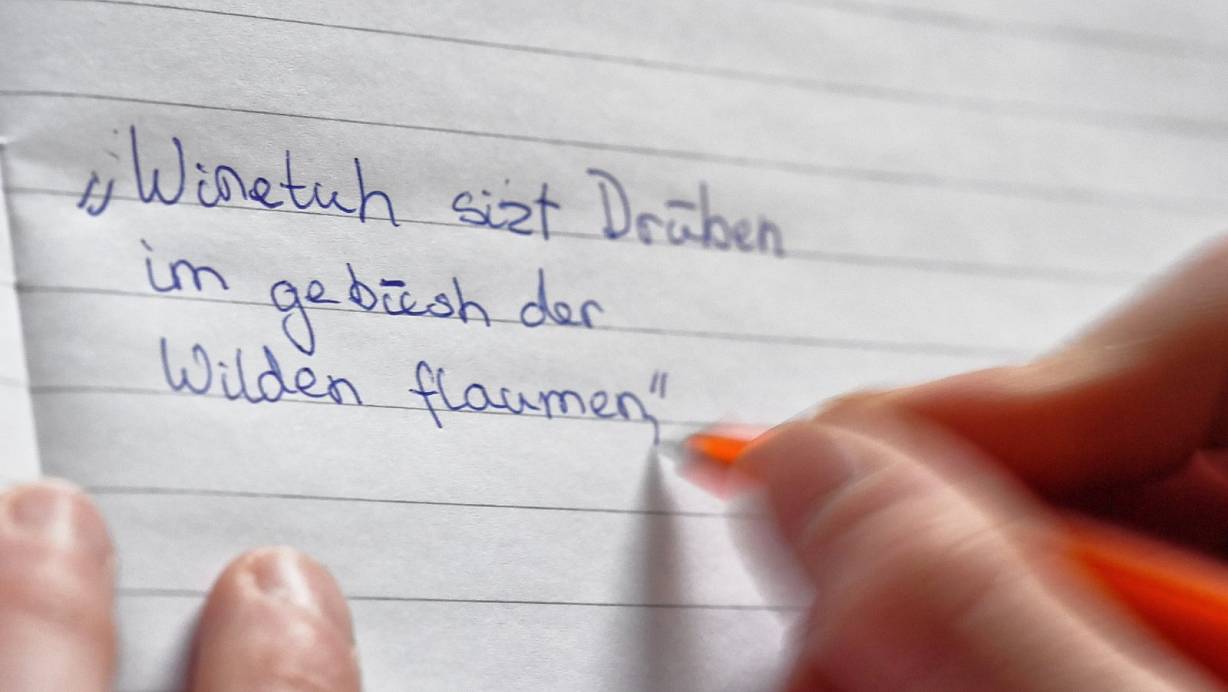 „Winetuh sizt Drüben
im gebüsh der
Wilden flaumen“,